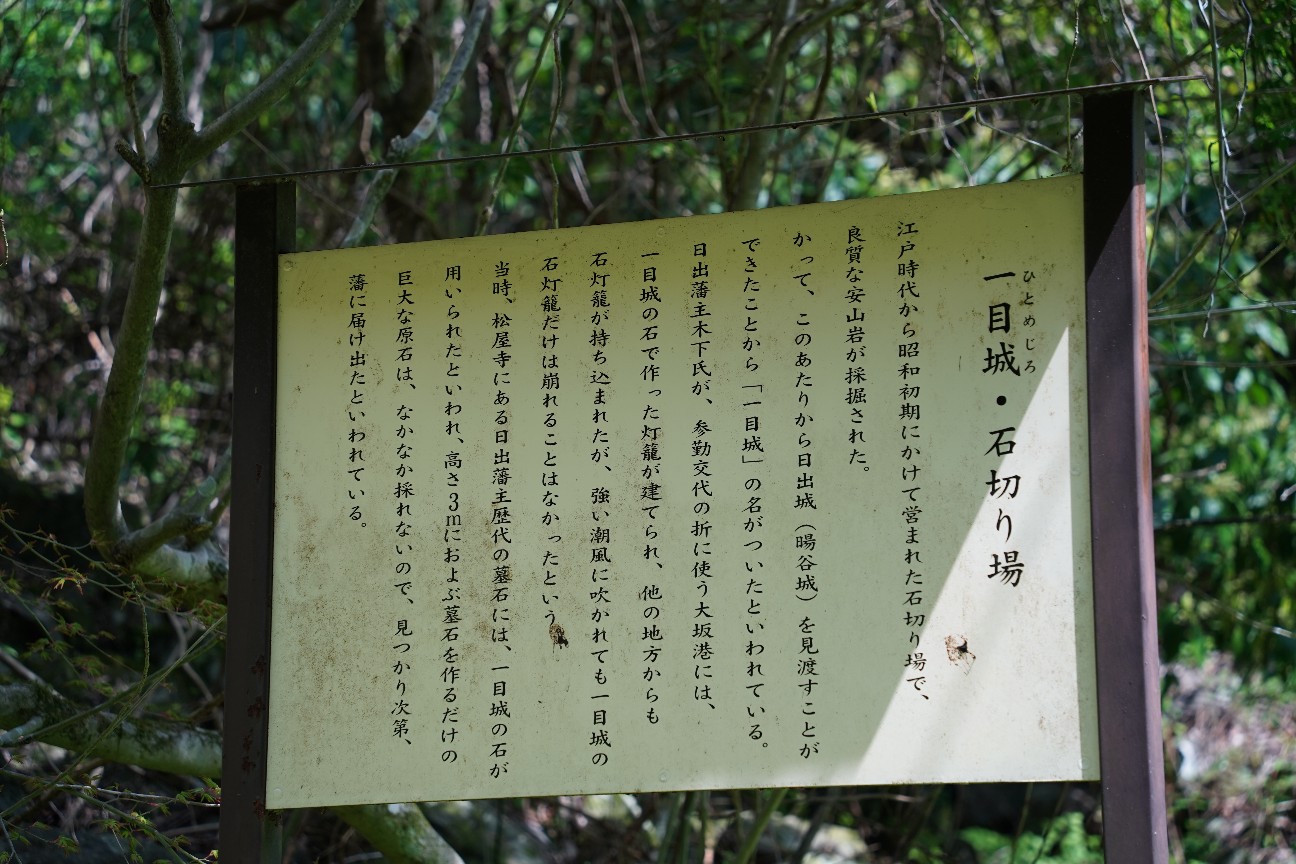 ひとめじろ
一目城・石切り場
江戸時代から昭和初期にかけて営まれた石切り場で、
良質な安山岩が採掘された。
かって、このあたりから日出城（暘谷城）を見渡すことが
できたことから「一目城」の名がついたといわれている。
日出藩主木下氏が、参勤交代の折に使う大坂港には、
一目城の石で作った灯籠が建てられ、他の地方からも
石灯籠が持ち込まれたが、強い潮風に吹かれても一目城の
石灯籠だけは崩れることはなかったという
当時、松屋寺にある日出藩主歴代の墓石には、一目城の石が
用いられたといわれ、高さ3mにおよぶ墓石を作るだけの
巨大な原石は、なかなか採れないので、見つかり次第、
藩に届け出たといわれている。